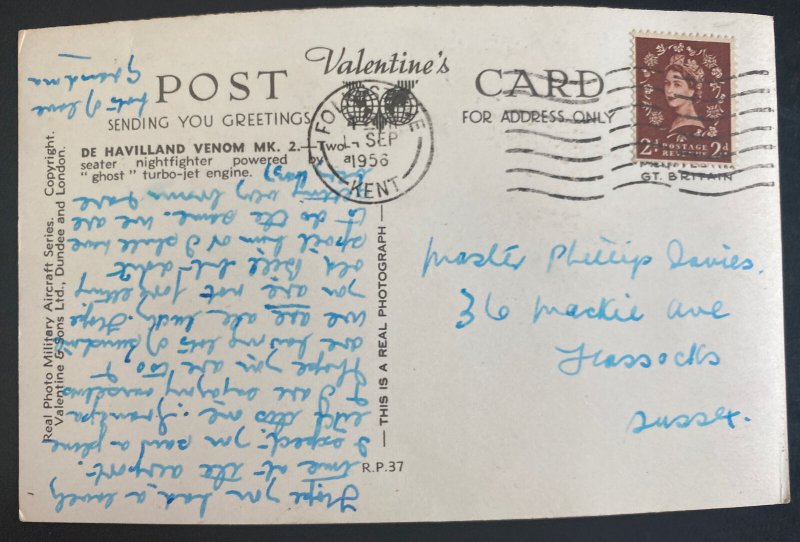 POST Valentine's CARD
SENDING YOU GREETINGS
FOR ADDRESS ONLY
DE HAVILLAND VENOM MK. 2.—Two-
seater nightfighter powered by
"ghost" turbo-jet engine.
FOLKESTONE
SEP
1956
KENT
2d POSTAGE REVENUE 2d
GT. BRITAIN
Real Photo Military Aircraft Series. Copyright.
Valentine & Sons Ltd., Dundee and London.
— THIS IS A REAL PHOTOGRAPH —
R.P.37
Master Phillip Davies.
36 Mackie Ave
Hassocks
Sussex.
Hope you had a lovely
time at the airport.
I expect you saw a plane
like this one. Grandpa
& I are enjoying ourselves
Hope you are too &
are having lots of sunshine
we are all lucky. Hope
you are not forgetting
old Bill but don't
spoil him or I shall have
to do the same. We are
getting very brown
lots of love
Grandma